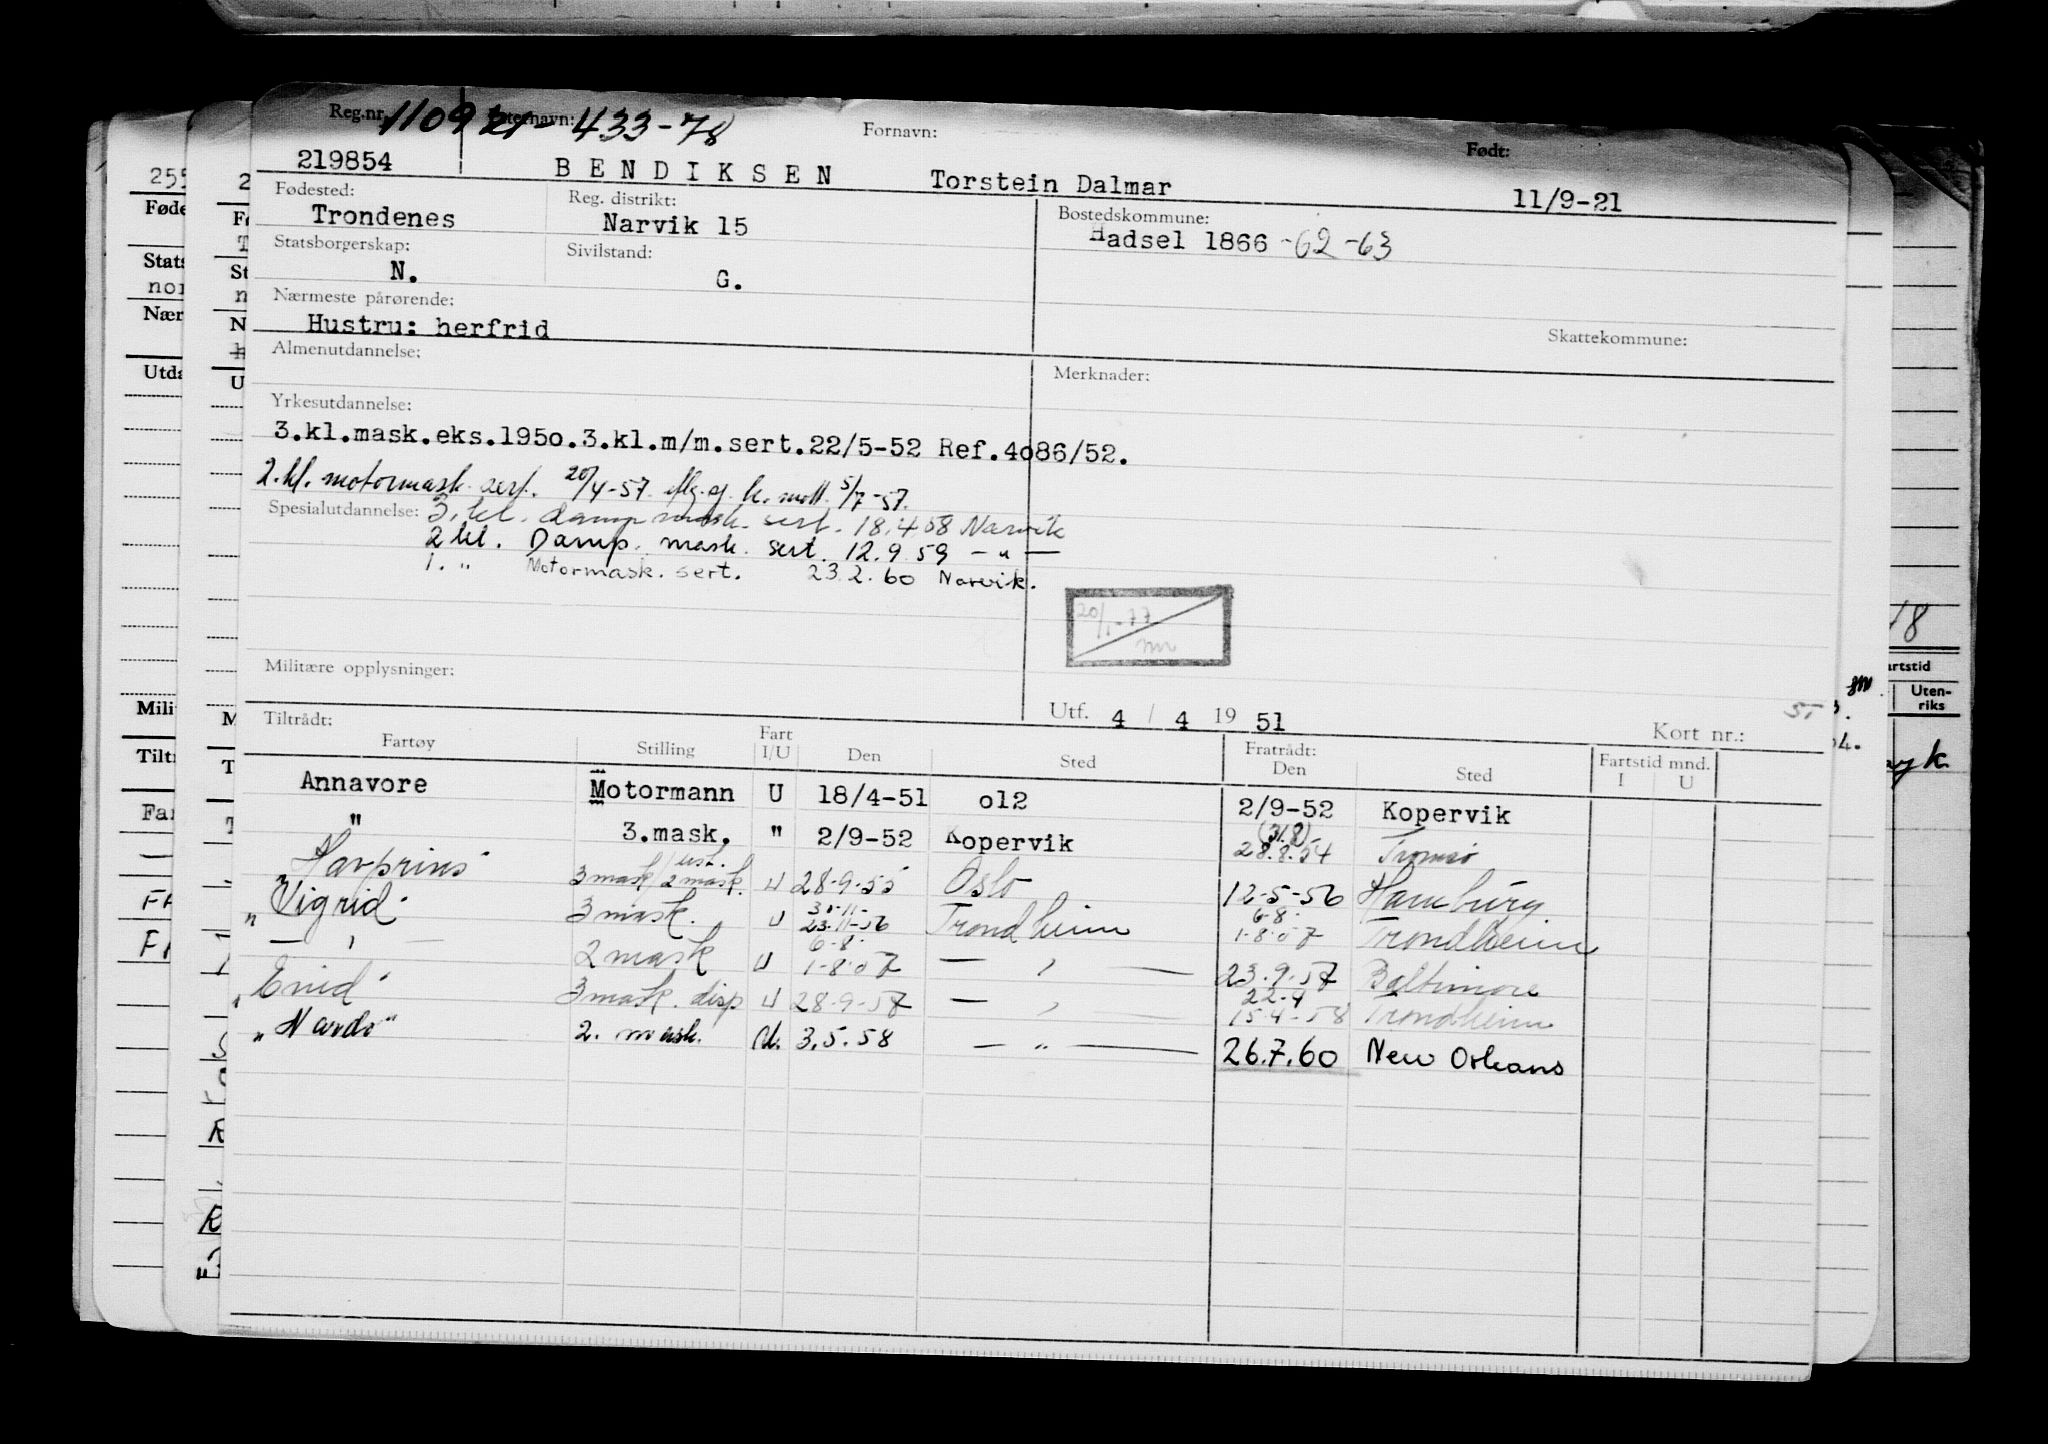 Reg.nr. 110921-433-78 Etternavn: Fornavn: Født:
219854 BENDIKSEN Torstein Dalmar 11/9-21
Fødested: Reg. distrikt: Bostedskommune:
Trondenes Narvik 15 Hadsel 1866 -62-63
Statsborgerskap: Sivilstand:
N. G.
Nærmeste pårørende:
Hustru: herfrid Skattekommune:
Almenutdannelse: Merknader:
Yrkesutdannelse:
3.kl.mask.eks.195o.3.kl.m/m.sert.22/5-52 Ref.4o86/52.
2.kl. motormask. sert. 20/4-57. 5/7-57.
Spesialutdannelse: 3. kl. damp mask. sert. 18.4.58 Narvik
2 kl. Damp. mask. sert. 12.9.59 — " —
1. " Motormask. sert. 23.2.60 Narvik.
20/1-77
Militære opplysninger:
Utf. 4 / 4 19 51 Kort nr.:
Tiltrådt: Fart Fratrådt: Fartstid mnd.
Fartøy Stilling I/U Den Sted Den Sted I U
Annavore Motormann U 18/4-51 o12 2/9-52 Kopervik
" 3.mask. " 2/9-52 Kopervik (31.8) 28.8.54 Tromsø
"Havprins" 3 mask/2 mask. U 28-9-55 Oslo 12-5-56 Hamburg
"Vigrid" 3 mask. U 30-11- 23-11-56 Trondheim 6-8- 1-8-57 Trondheim
— " — 2 mask U 6-8- 1-8-57 — " — 23.9.57 Baltimore
"Enid" 3 mask. disp U 28-9-57 — " — 22-4 15-4-58 Trondheim
"Nardo" 2. mask. U. 3.5.58 — " — 26.7.60 New Orleans